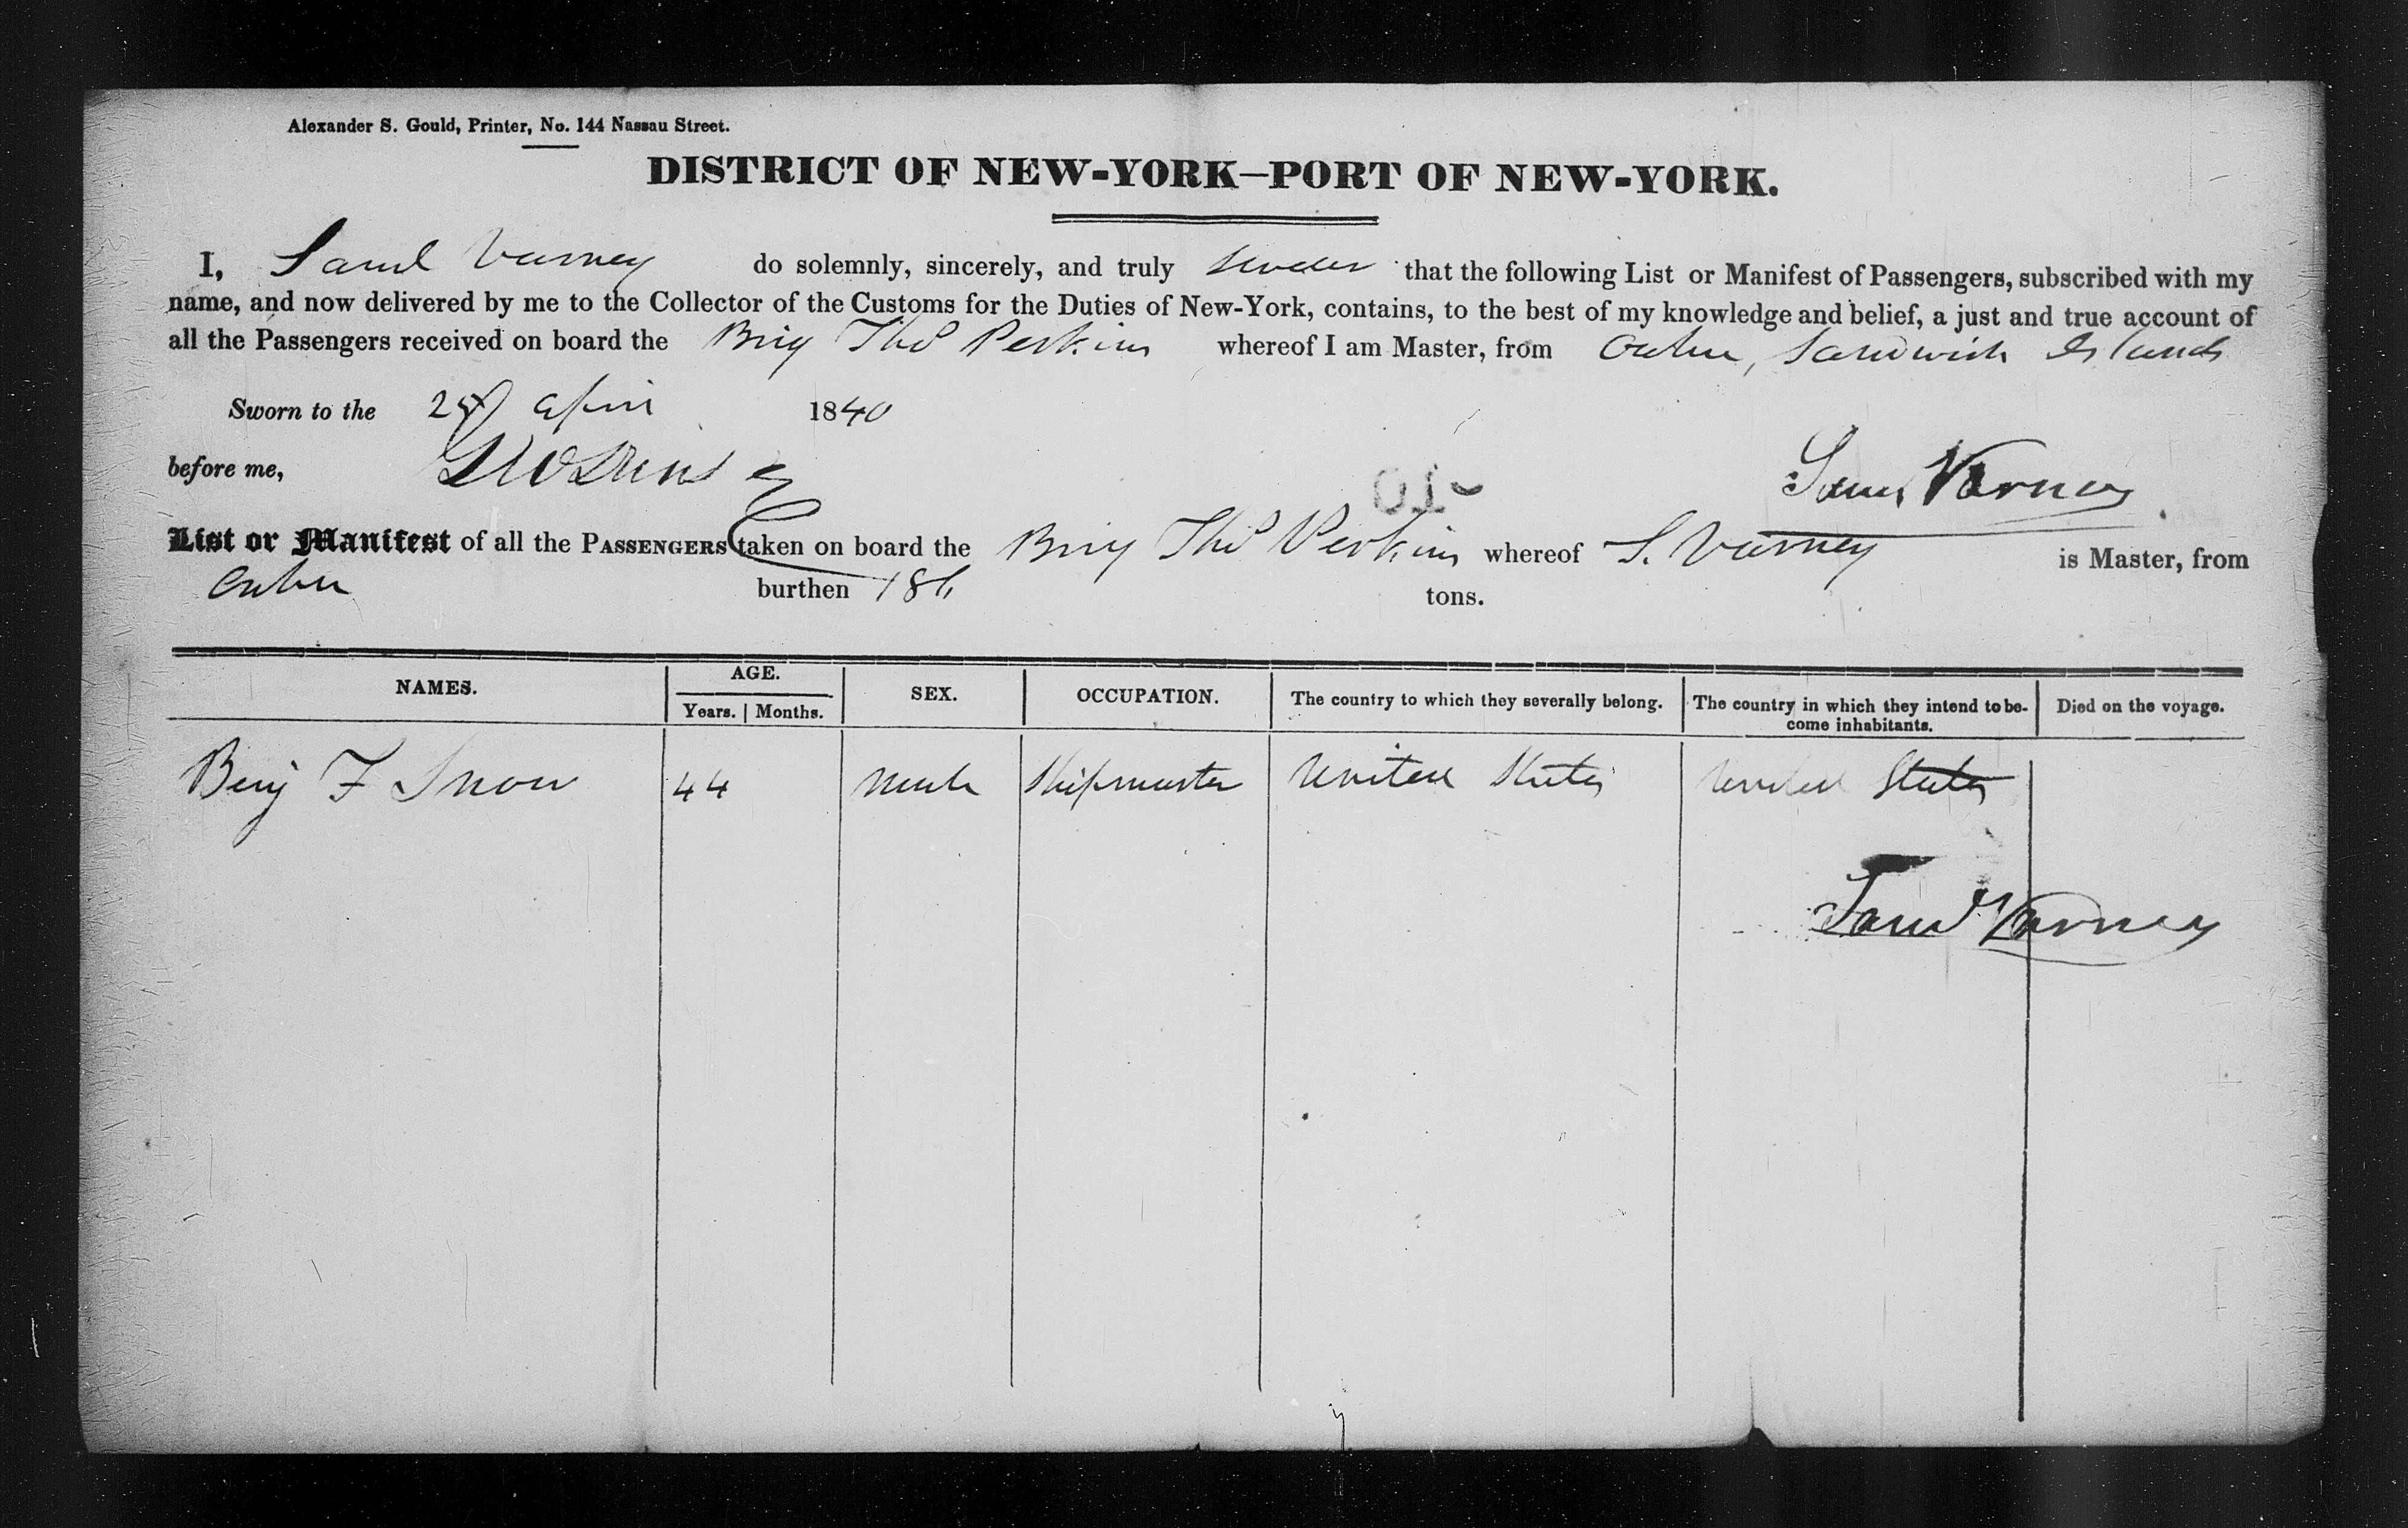 Alexander S. Gould, Printer, No. 144 Nassau Street.
DISTRICT OF NEW-YORK—PORT OF NEW-YORK.
I, Saml Varney do solemnly, sincerely, and truly swear that the following List or Manifest of Passengers, subscribed with my
name, and now delivered by me to the Collector of the Customs for the Duties of New-York, contains, to the best of my knowledge and belief, a just and true account of
all the Passengers received on board the Brig Thos Perkins whereof I am Master, from Oahu, Sandwich Islands
Sworn to the April 1840
before me,
Saml Varney
List or Manifest of all the PASSENGERS taken on board the Brig Thos Perkins whereof S. Varney is Master, from
Oahu burthen 186 tons.
NAMES. AGE. SEX. OCCUPATION. The country to which they severally belong. The country in which they intend to be- Died on the voyage.
Years. Months. come inhabitants.
Benj F Snow 44 male Shipmaster United States United States
Saml Varney